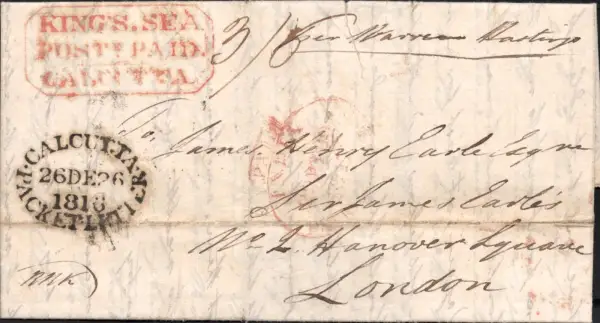 KING'S. SEA
POST PAID.
CALCUTTA.
3/ per Warren Hastings
CALCUTTA
PACKET LETTER
26DE26
1816
To James Henry Earle Esqre
Sir James Earle's
No 2. Hanover Square
London